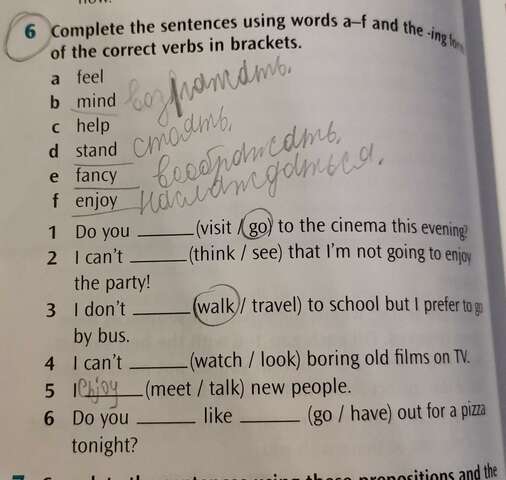 6 Complete the sentences using words a–f and the -ing form
of the correct verbs in brackets.
a feel
b mind возражать,
c help
d stand стоять,
e fancy
f enjoy наслаждаться,
1 Do you ______ (visit / go) to the cinema this evening?
2 I can't ______ (think / see) that I'm not going to enjoy
the party!
3 I don't ______ (walk / travel) to school but I prefer to go
by bus.
4 I can't ______ (watch / look) boring old films on TV.
5 I enjoy (meet / talk) new people.
6 Do you ______ like ______ (go / have) out for a pizza
tonight?
these prepositions and the